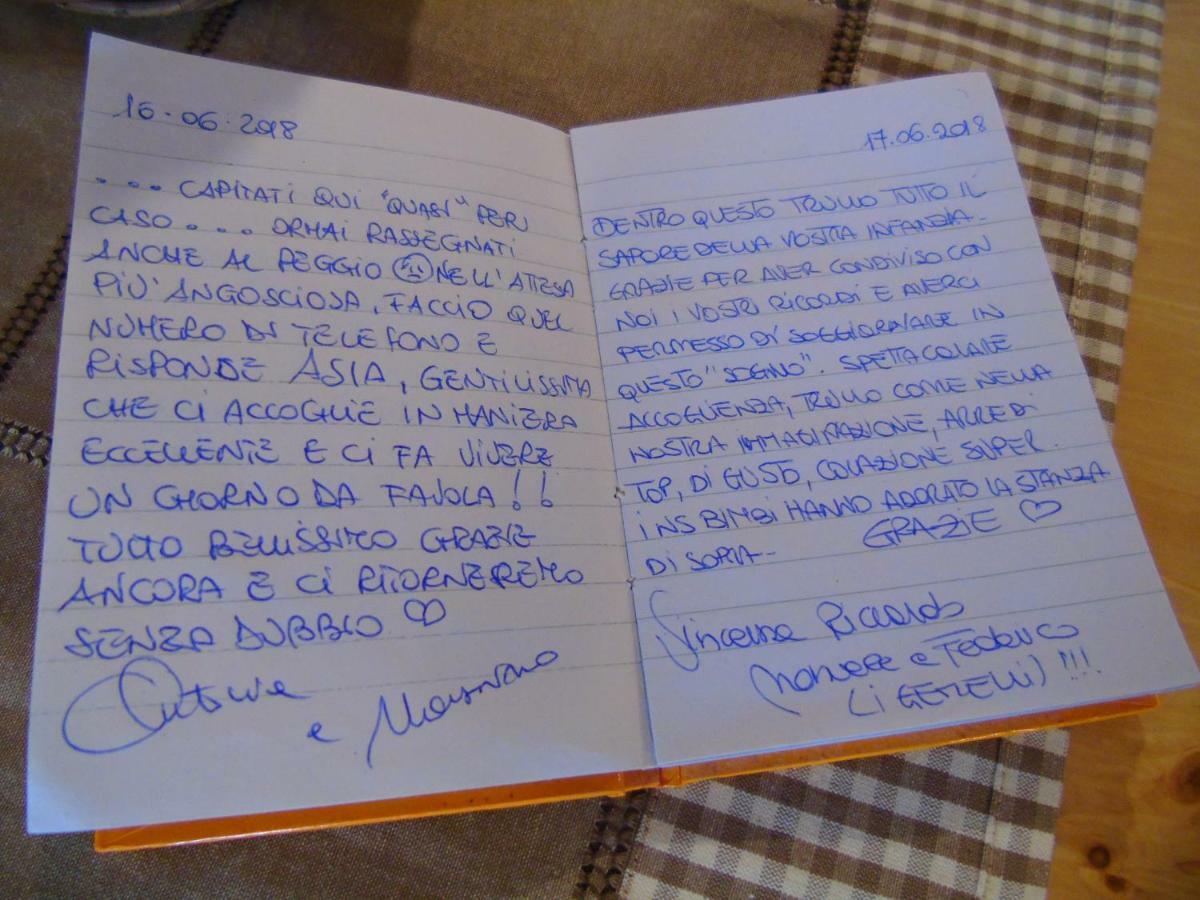 16.06.2018
.... CAPITATI QUI "QUASI" PER
CASO.... ORMAI RASSEGNATI
ANCHE AL PEGGIO NELL'ATTESA
PIU' ANGOSCIOSA, FACCIO QUEL
NUMERO DI TELEFONO E
RISPONDE ASIA, GENTILISSIMA
CHE CI ACCOGLIE IN MANIERA
ECCELLENTE E CI FA VIVERE
UN GIORNO DA FAVOLA!!
TUTTO BELLISSIMO GRAZIE
ANCORA E CI RITORNEREMO
SENZA DUBBIO ♡
e
17.06.2018
DENTRO QUESTO TRULLO TUTTO IL
SAPORE DELLA VOSTRA INFANZIA.
GRAZIE PER AVER CONDIVISO CON
NOI I VOSTRI RICORDI E AVERCI
PERMESSO DI SOGGIORNARE IN
QUESTO "SOGNO". SPETTACOLARE
ACCOGLIENZA, TRULLO COME NELLA
NOSTRA IMMAGINAZIONE, ARREDI
TOP, DI GUSTO, COLAZIONE SUPER.
I NS BIMBI HANNO ADORATO LA STANZA
DI SOPRA- GRAZIE ♡
Riccardo
e Federico
(I GEMELLI)!!!